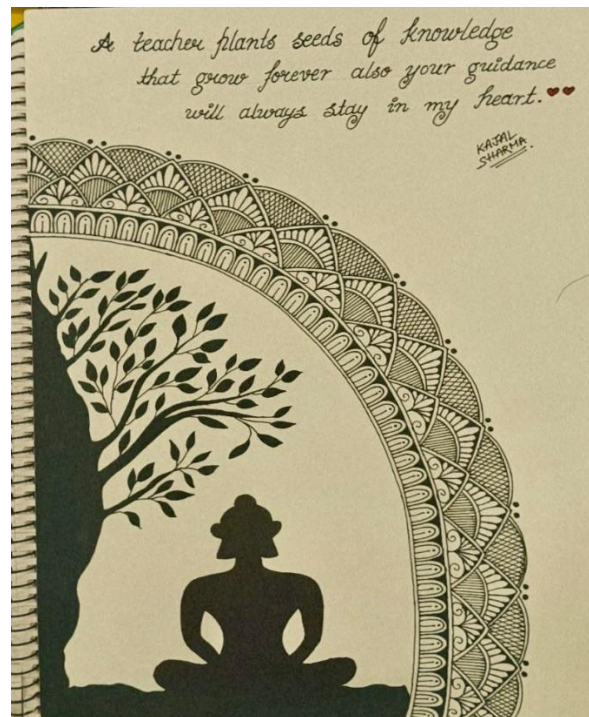 A teacher plants seeds of knowledge
that grow forever also your guidance
will always stay in my heart.
KAJAL
SHARMA.